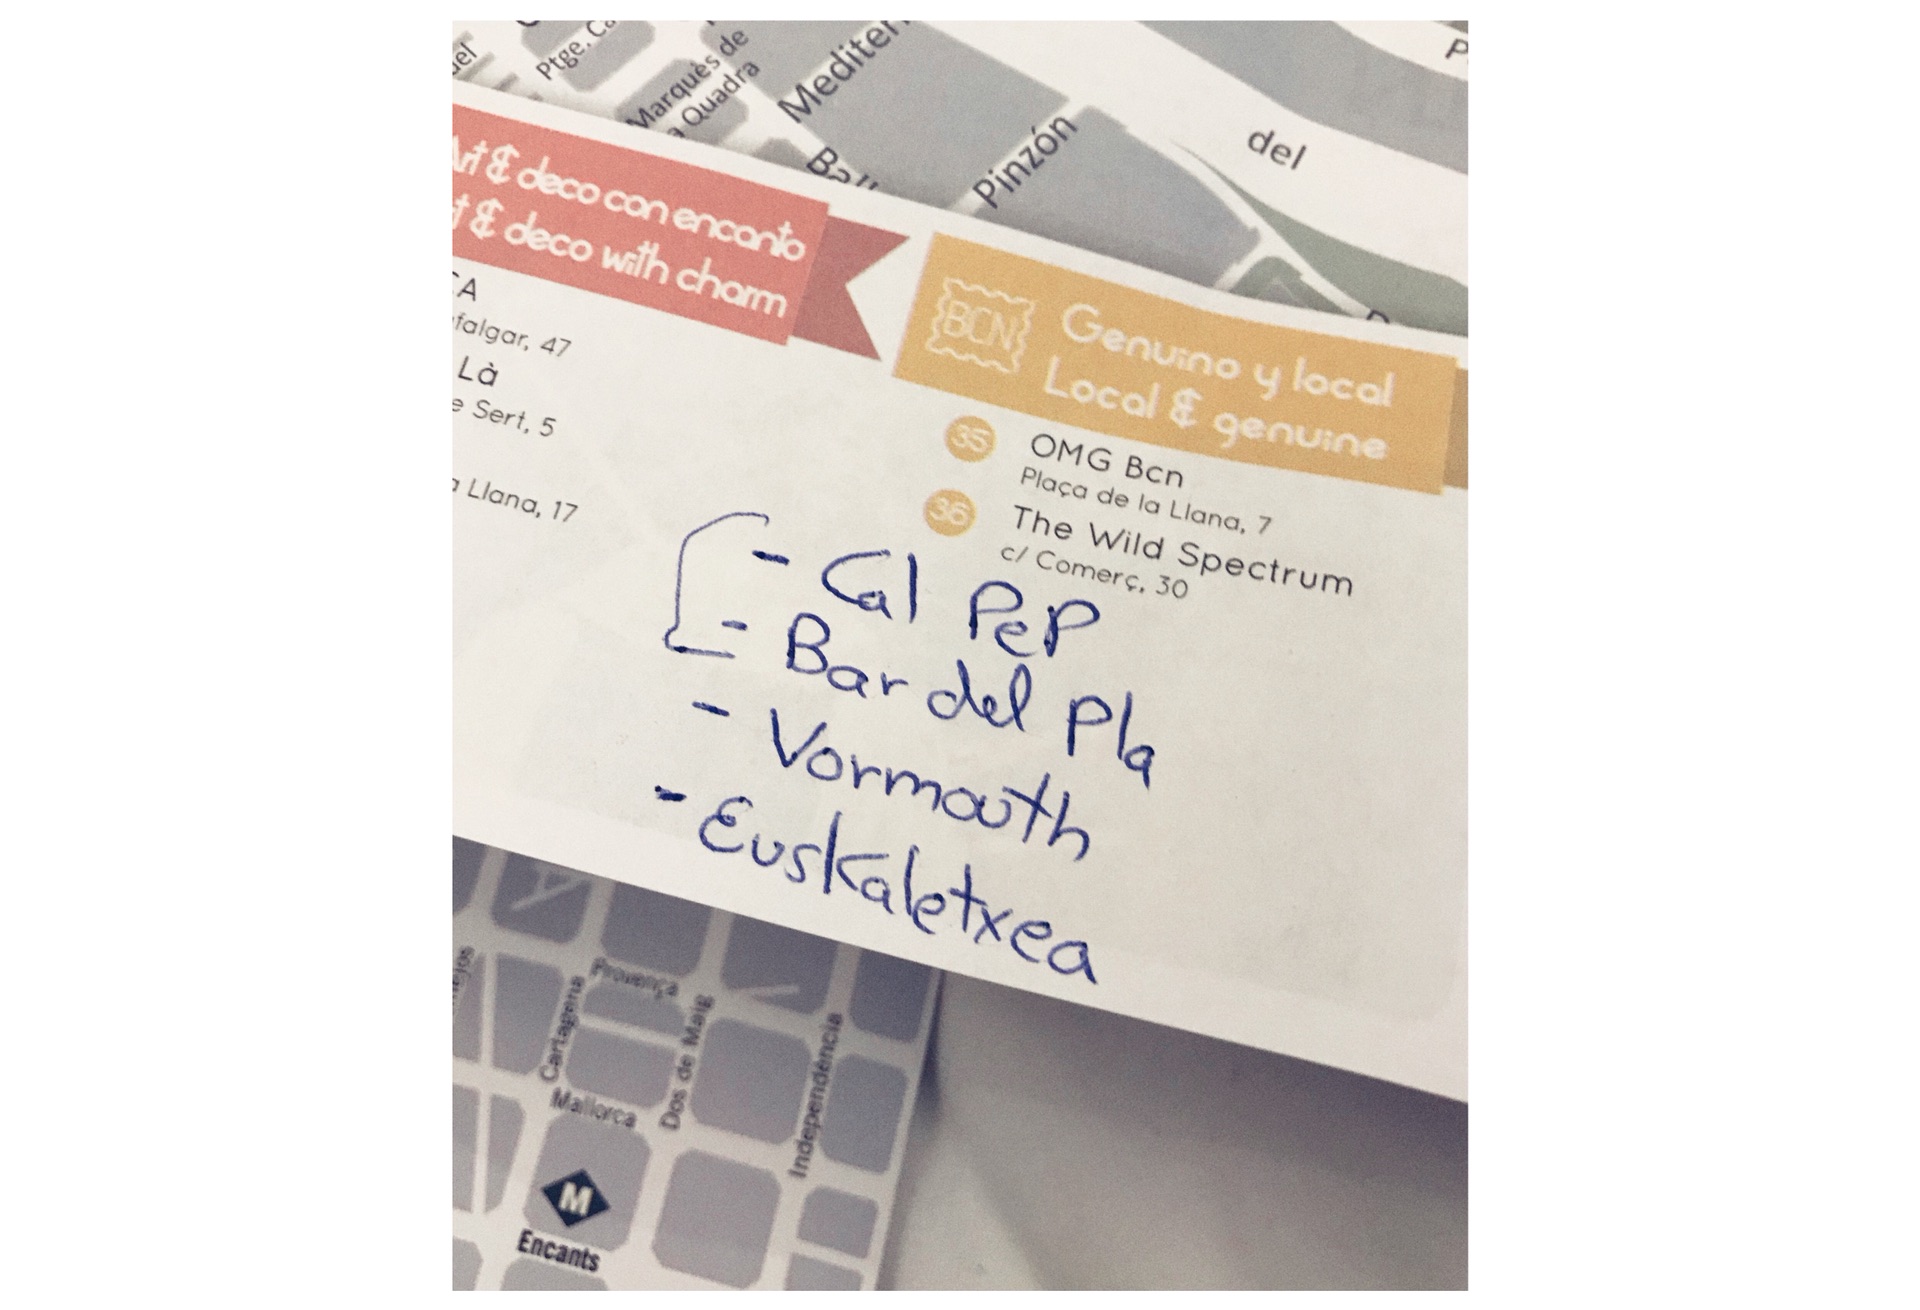 Ptge.
Marquès de
Quadra
Pinzón
del
Art & deco con encanto
& deco with charm
47
Là
Sert, 5
Llana, 17
BCN
Genuino y local
Local & genuine
35 OMG Bcn
Plaça de la Llana, 7
36 The Wild Spectrum
c/ Comerç, 30
- Cal PeP
- Bar del Pla
- Vormouth
- Euskaletxea
Provença
Cartagena
Dos de Maig
Independència
Mallorca
M
Encants